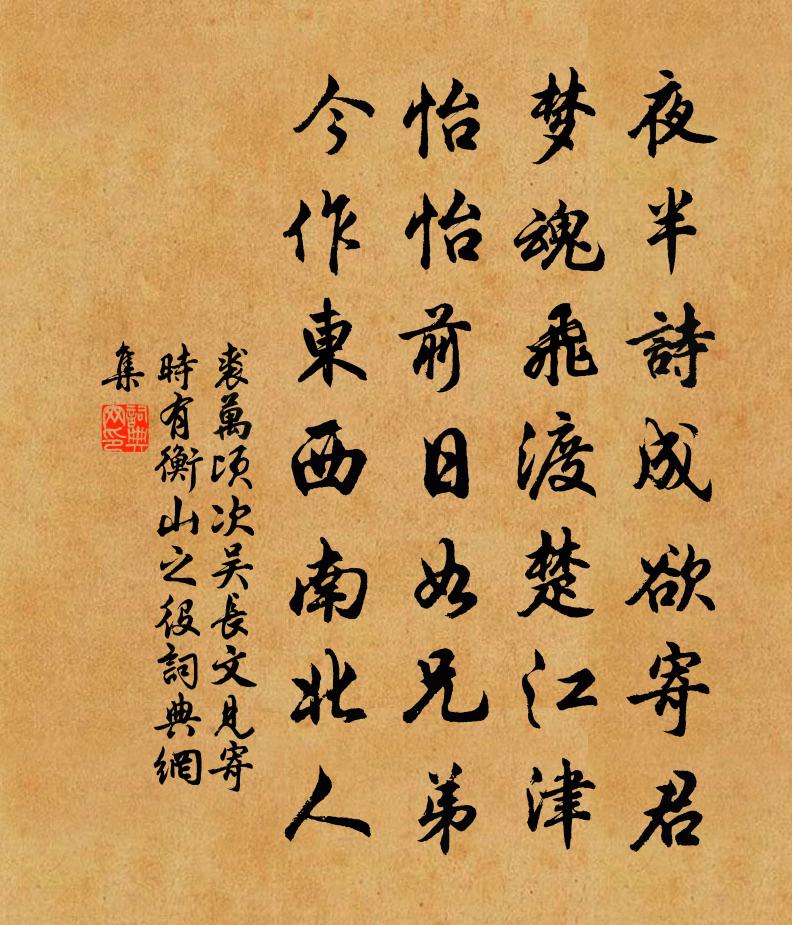 夜半詩成欲寄君
梦魂飛渡楚江津
怡怡前日如兄弟
今作東西南北人
裘萬頃次吴長文見寄
時有衡山之役詞典網
集
詞典網印